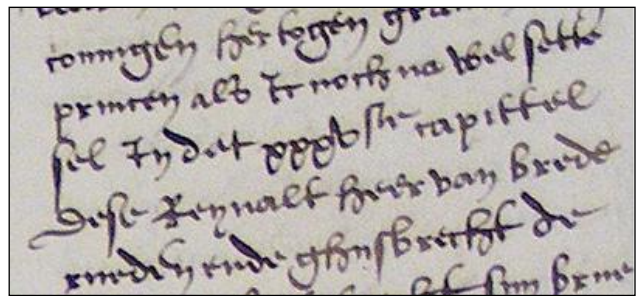 coningen hertogen
princen als Ic noch na wel sette
sel In dat xxxvste capittel
Dese Reynalt heer van brede
roeden ende ghijsbrecht de
sijn